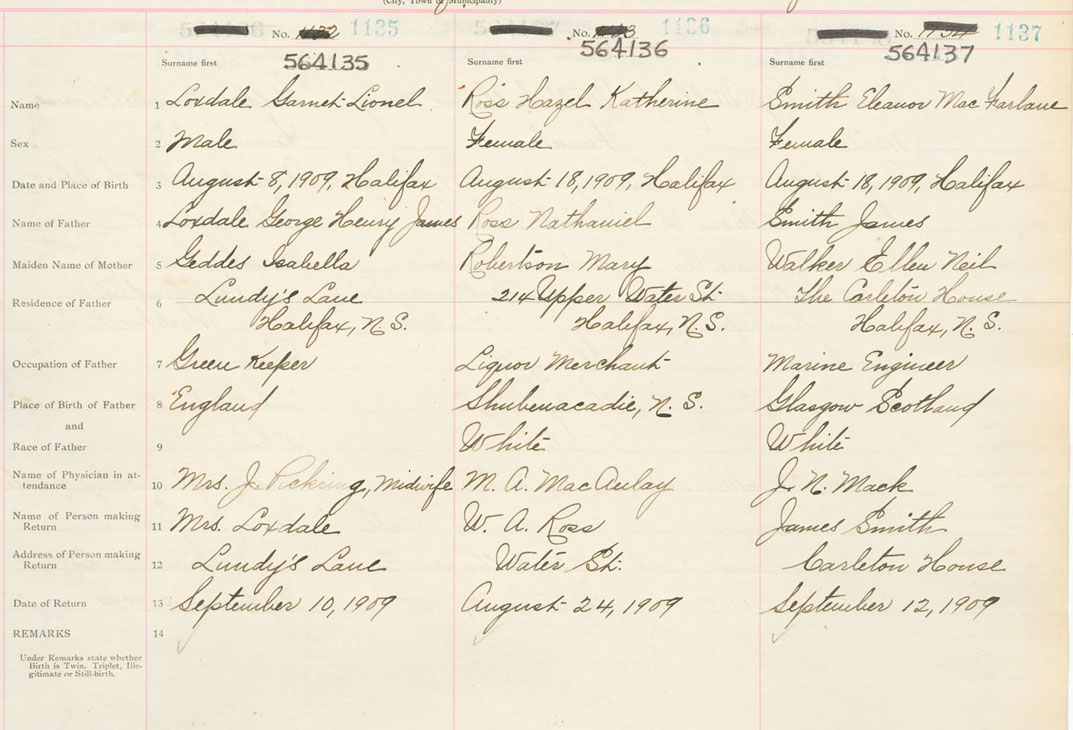 (City, Town or Municipality)
No. 1132 1135 No. 1133 1136 No. 1134 1137
564135 564136 564137
Surname first Surname first Surname first
Name 1 Loxdale Garnet Lionel Ross Hazel Katherine Smith Eleanor Mac Farlane
Sex 2 Male Female Female
Date and Place of Birth 3 August 8, 1909, Halifax August 18, 1909, Halifax August 18, 1909, Halifax
Name of Father 4 Loxdale George Henry James Ross Nathaniel Smith James
Maiden Name of Mother 5 Geddes Isabella Robertson Mary Walker Ellen Neil
Residence of Father 6 Lundy's Lane 214 Upper Water St. The Carleton House
Halifax, N.S. Halifax, N.S. Halifax, N.S.
Occupation of Father 7 Green Keeper Liquor Merchant Marine Engineer
Place of Birth of Father 8 England Shubenacadie, N.S. Glasgow Scotland
and
Race of Father 9 White White
Name of Physician in at-
tendance 10 Mrs. J. Pickring, Midwife M. A. MacAulay J. N. Mack
Name of Person making
Return 11 Mrs. Loxdale W. A. Ross James Smith
Address of Person making
Return 12 Lundy's Lane Water St. Carleton House
Date of Return 13 September 10, 1909 August 24, 1909 September 12, 1909
REMARKS 14
Under Remarks state whether
Birth is Twin, Triplet, Ille-
gitimate or Still-birth.